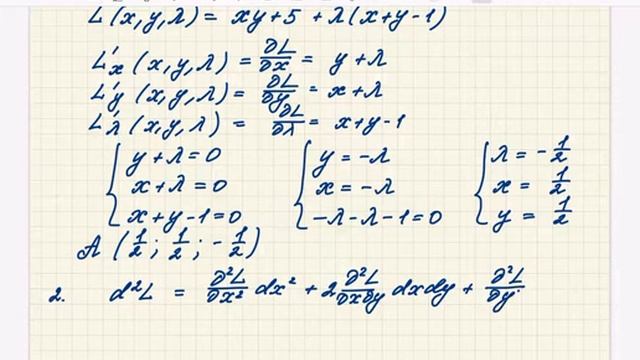 L(x,y,λ) = xy+5 + λ(x+y-1)
L'x (x,y,λ) = ∂L/∂x = y+λ
L'y (x,y,λ) = ∂L/∂y = x+λ
L'λ (x,y,λ) = ∂L/∂λ = x+y-1
{ y+λ=0 { y=-λ { λ=-1/2
{ x+λ=0 { x=-λ { x= 1/2
{ x+y-1=0 { -λ-λ-1=0 { y= 1/2
A (1/2; 1/2; -1/2)
2. d²L = ∂²L/∂x² dx² + 2 ∂²L/∂x∂y dxdy + ∂²L/∂y